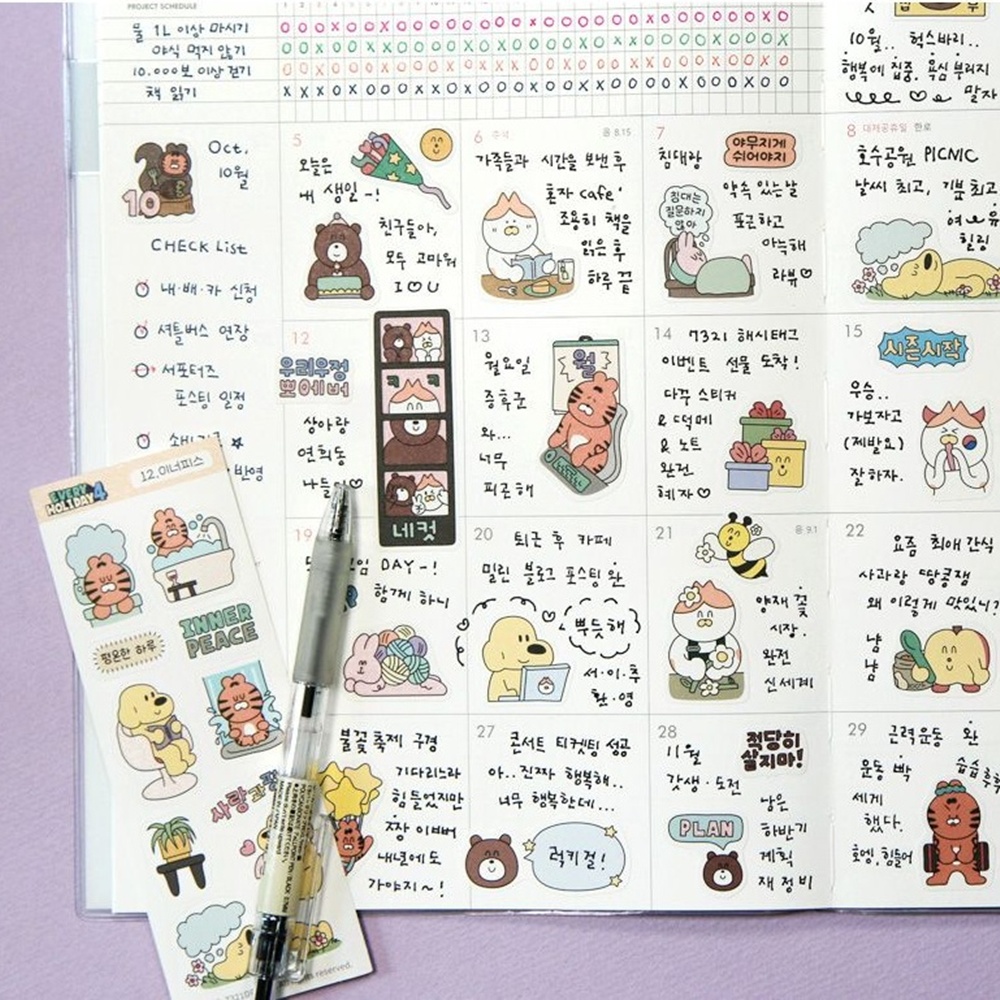 PROJECT SCHEDULE
물 1L 이상 마시기
야식 먹지 않기
10.000보 이상 걷기
책 읽기
10월.. 럭스바리..
행복에 집중. 욕심 부리지
말자
Oct.
10월
10
CHECK List
내·배·카 신청
셔틀버스 연장
서포터즈
포스팅 일정
반영
5
오늘은
내 생일-!
친구들아,
모두 고마워
I♡U
6 추석 음 8.15
가족들과 시간을 보낸 후
혼자 cafe'
조용히 책을
읽은 후
하루 끝
7
야무지게
쉬어야지
침대랑
약속 있는 날
침대는
질문하지
않아
포근하고
아늑해
라뷰♡
8 대체공휴일 한로
호수공원 PICNIC
날씨 최고, 기분 최고
여유
힐링
12
우리우정
뽀에버
상아랑
연희동
나들이♡
네컷
13
월
월요일
증후군
와...
너무
피곤해
14
7321 해시태그
이벤트 선물 도착!
다꾸 스티커
& 떡메
& 노트
완전
혜자♡
15
시즌시작
우승..
가보자고
(제발요)
잘하자.
19
DAY-!
함께 하니
20
퇴근 후 카페
밀린 블로그 포스팅 완
뿌듯해
서·이·추
환·영
21 음 9.1
양재 꽃
시장.
완전
신세계
22
요즘 최애 간식
사과랑 땅콩잼
왜 이렇게 맛있니?
냠
냠
불꽃축제 구경
기다리느라
힘들었지만
짱 이뻐
내년에도
가야지~!
27
콘서트 티켓팅 성공
아..진짜 행복해..
너무 행복한데...
럭키걸!
28
적당히
살지마!
11월
갓생·도전
PLAN
남은
하반기
계획
재정비
29
근력운동 완
운동 빡
세게
했다.
습습후후
호엥, 힘들어
12.이너피스
EVERY
HOLIDAY 4
INNER
PEACE
평온한 하루
사랑과 평
reserved.